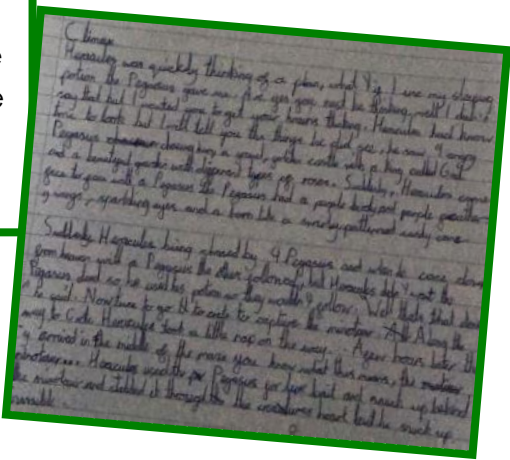 Climax
Hercules was quickly thinking of a plan, what if I use my sleeping
potion the Pegasus gave me. you may be thinking, well I didn't
say that but I wanted to get your brains thinking. Hercules had
time to look but I will tell you the things he did see, he saw, 4
Pegasus guarding a small, castle with a king called
and a beautiful garden with different types of roses. Suddenly, Hercules came
face to face with a Pegasus the Pegasus had a purple body and purple
wings, sparkling eyes and a horn like a swirly patterned candy cane
Suddenly Hercules being chased by 4 Pegasus and when he came down
from heaven with a Pegasus the other followed, but Hercules didn't want the
Pegasus dead so he used his potion so they wouldn't follow. Well thats that done
he said. Now time to get to Crete to capture the minotaur. Along the
way to Crete Hercules had a little nap on the way. hours later
arrived in the middle of the maze you know what this means, the minotaur
minotaur... Hercules used the Pegasus for bait and snuck up behind
the minotaur and stabbed it through the creatures heart but he snuck up